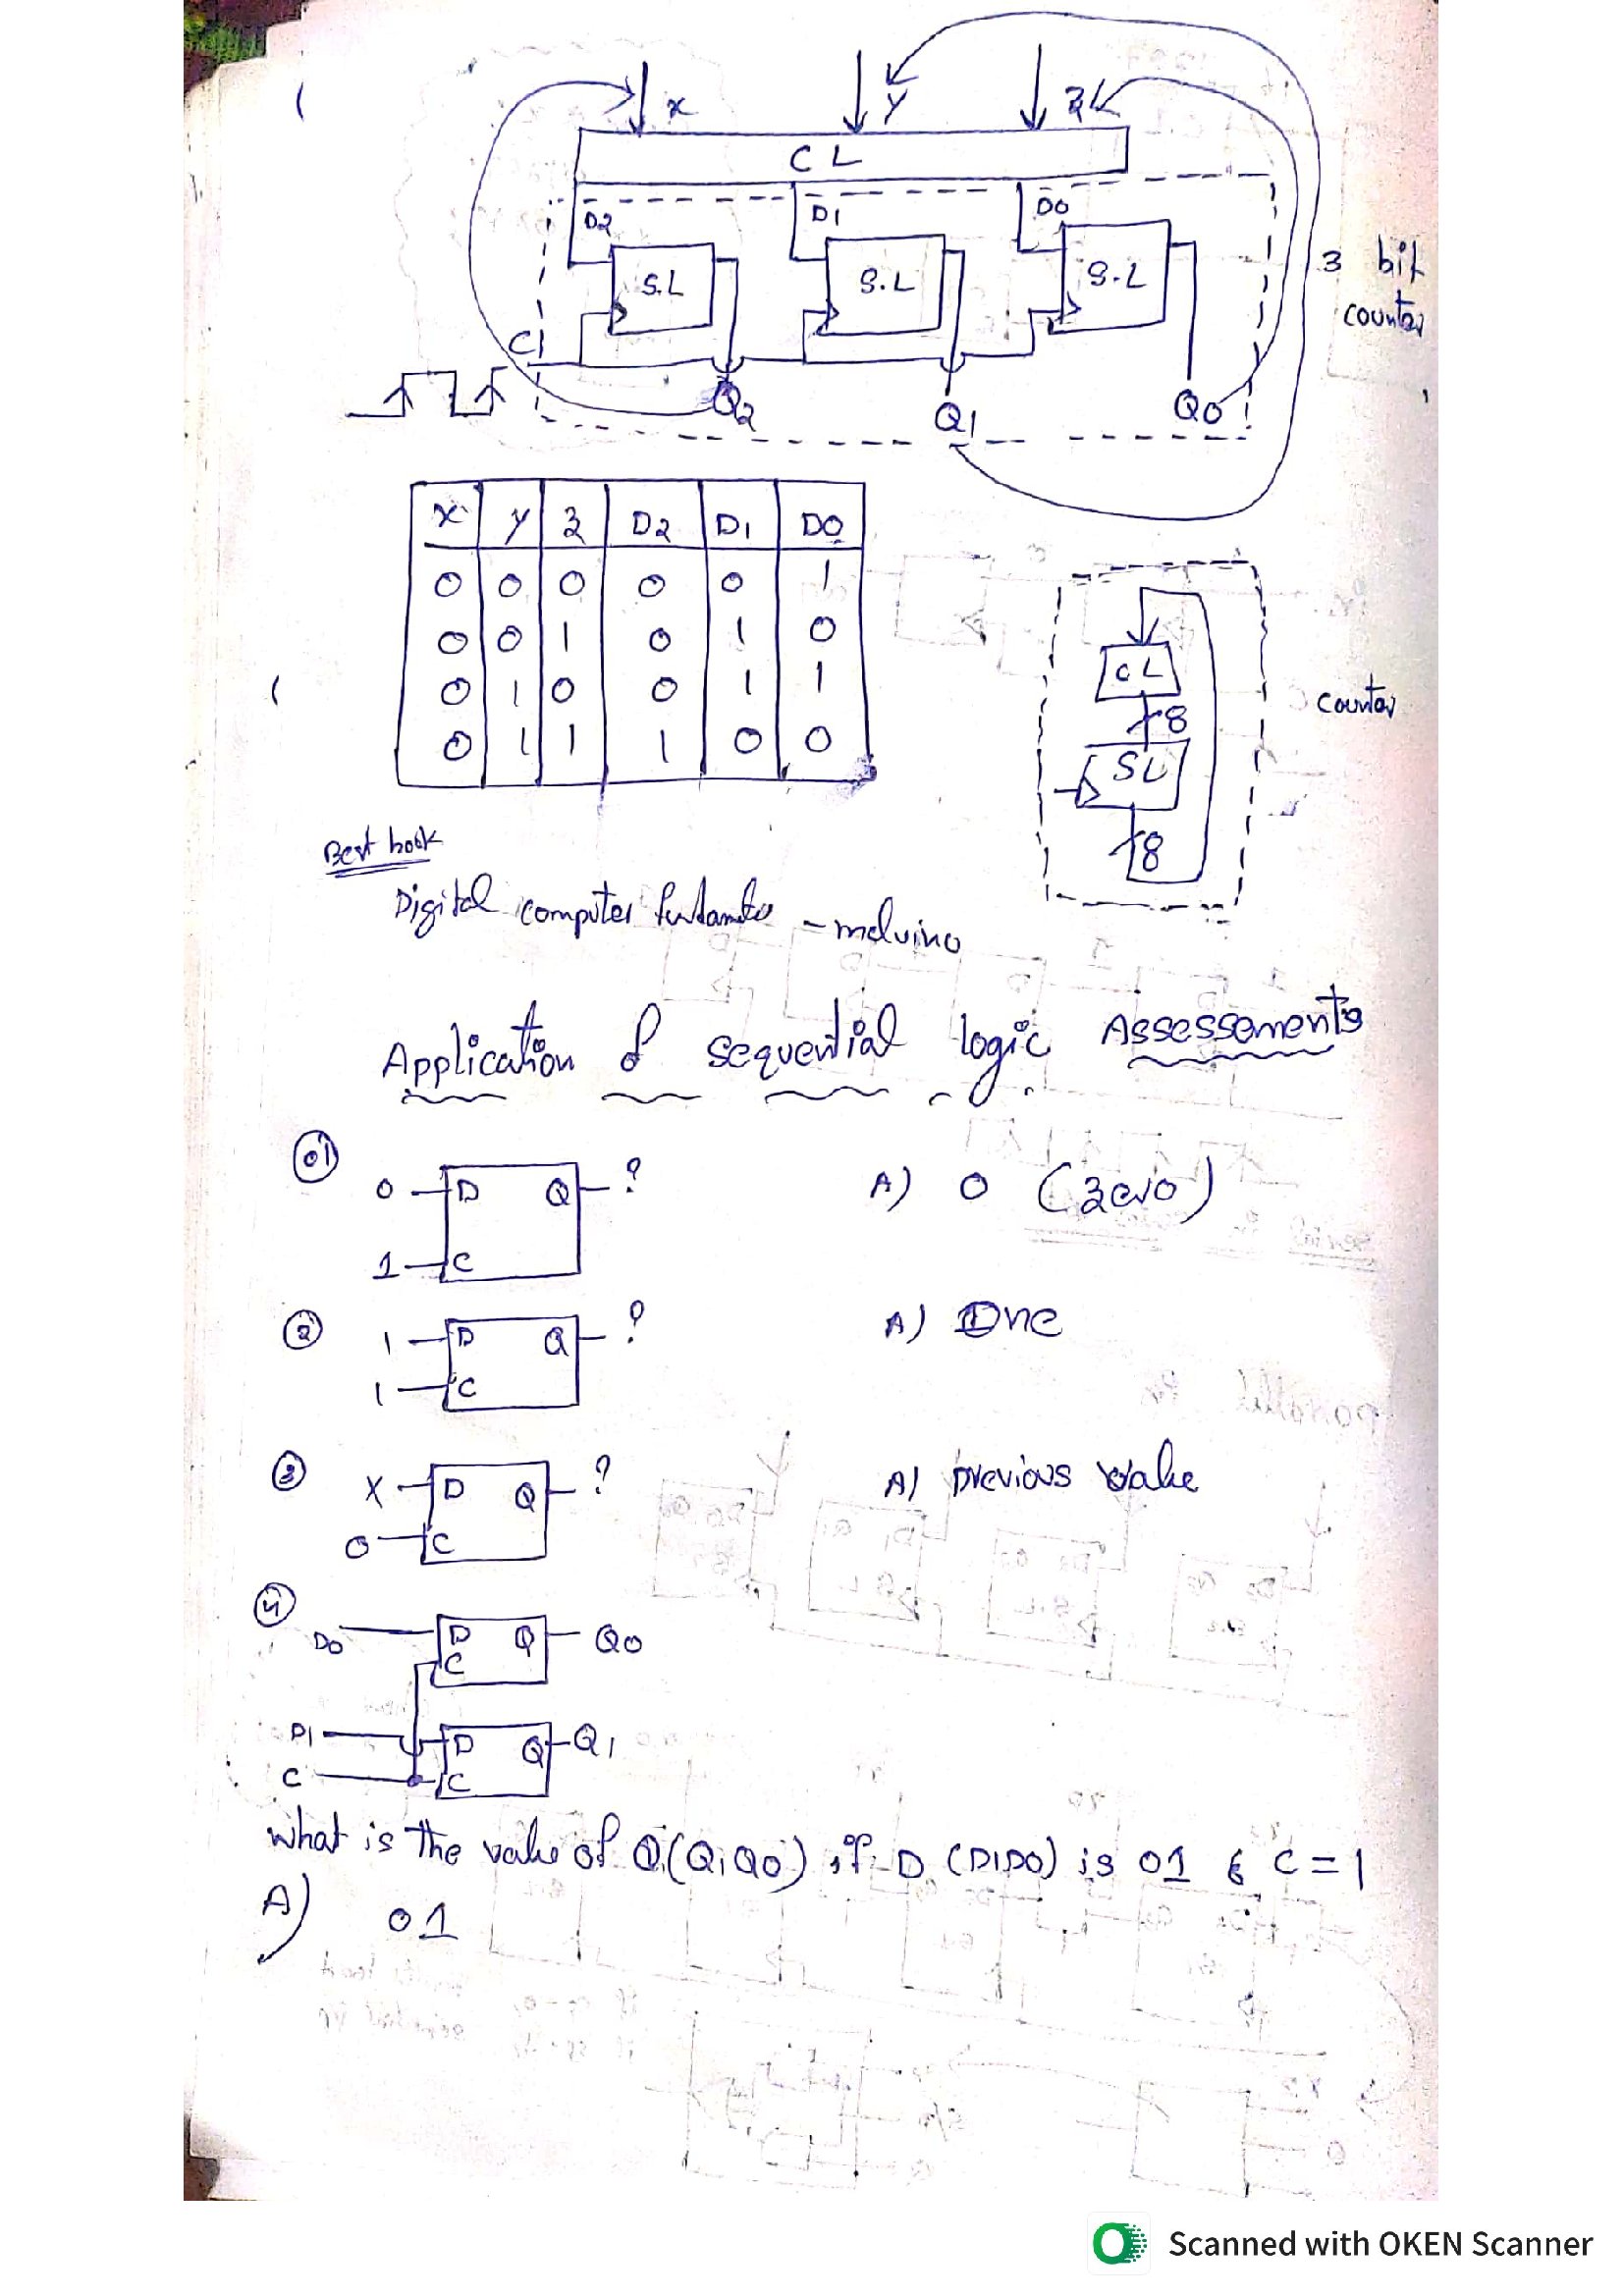 x y z
C L
D2 D1 D0
S.L S.L S.L
3 bit
counter
C
Q2 Q1 Q0
x y z D2 D1 D0
0 0 0 0 0 1
0 0 1 0 1 0
0 1 0 0 1 1
0 1 1 1 0 0
CL
8
SL
8
counter
Best book
Digital computer - melvino
Application of sequential logic Assessements
01
0 D Q ?
1 C
A) 0 (zero)
2
1 D Q ?
1 C
A) One
3
X D Q ?
0 C
A) previous value
4
D0 D Q Q0
C
D1 D Q Q1
C C
what is the value of Q(Q1Q0) if D (D1D0) is 01 & C = 1
A) 01
Scanned with OKEN Scanner